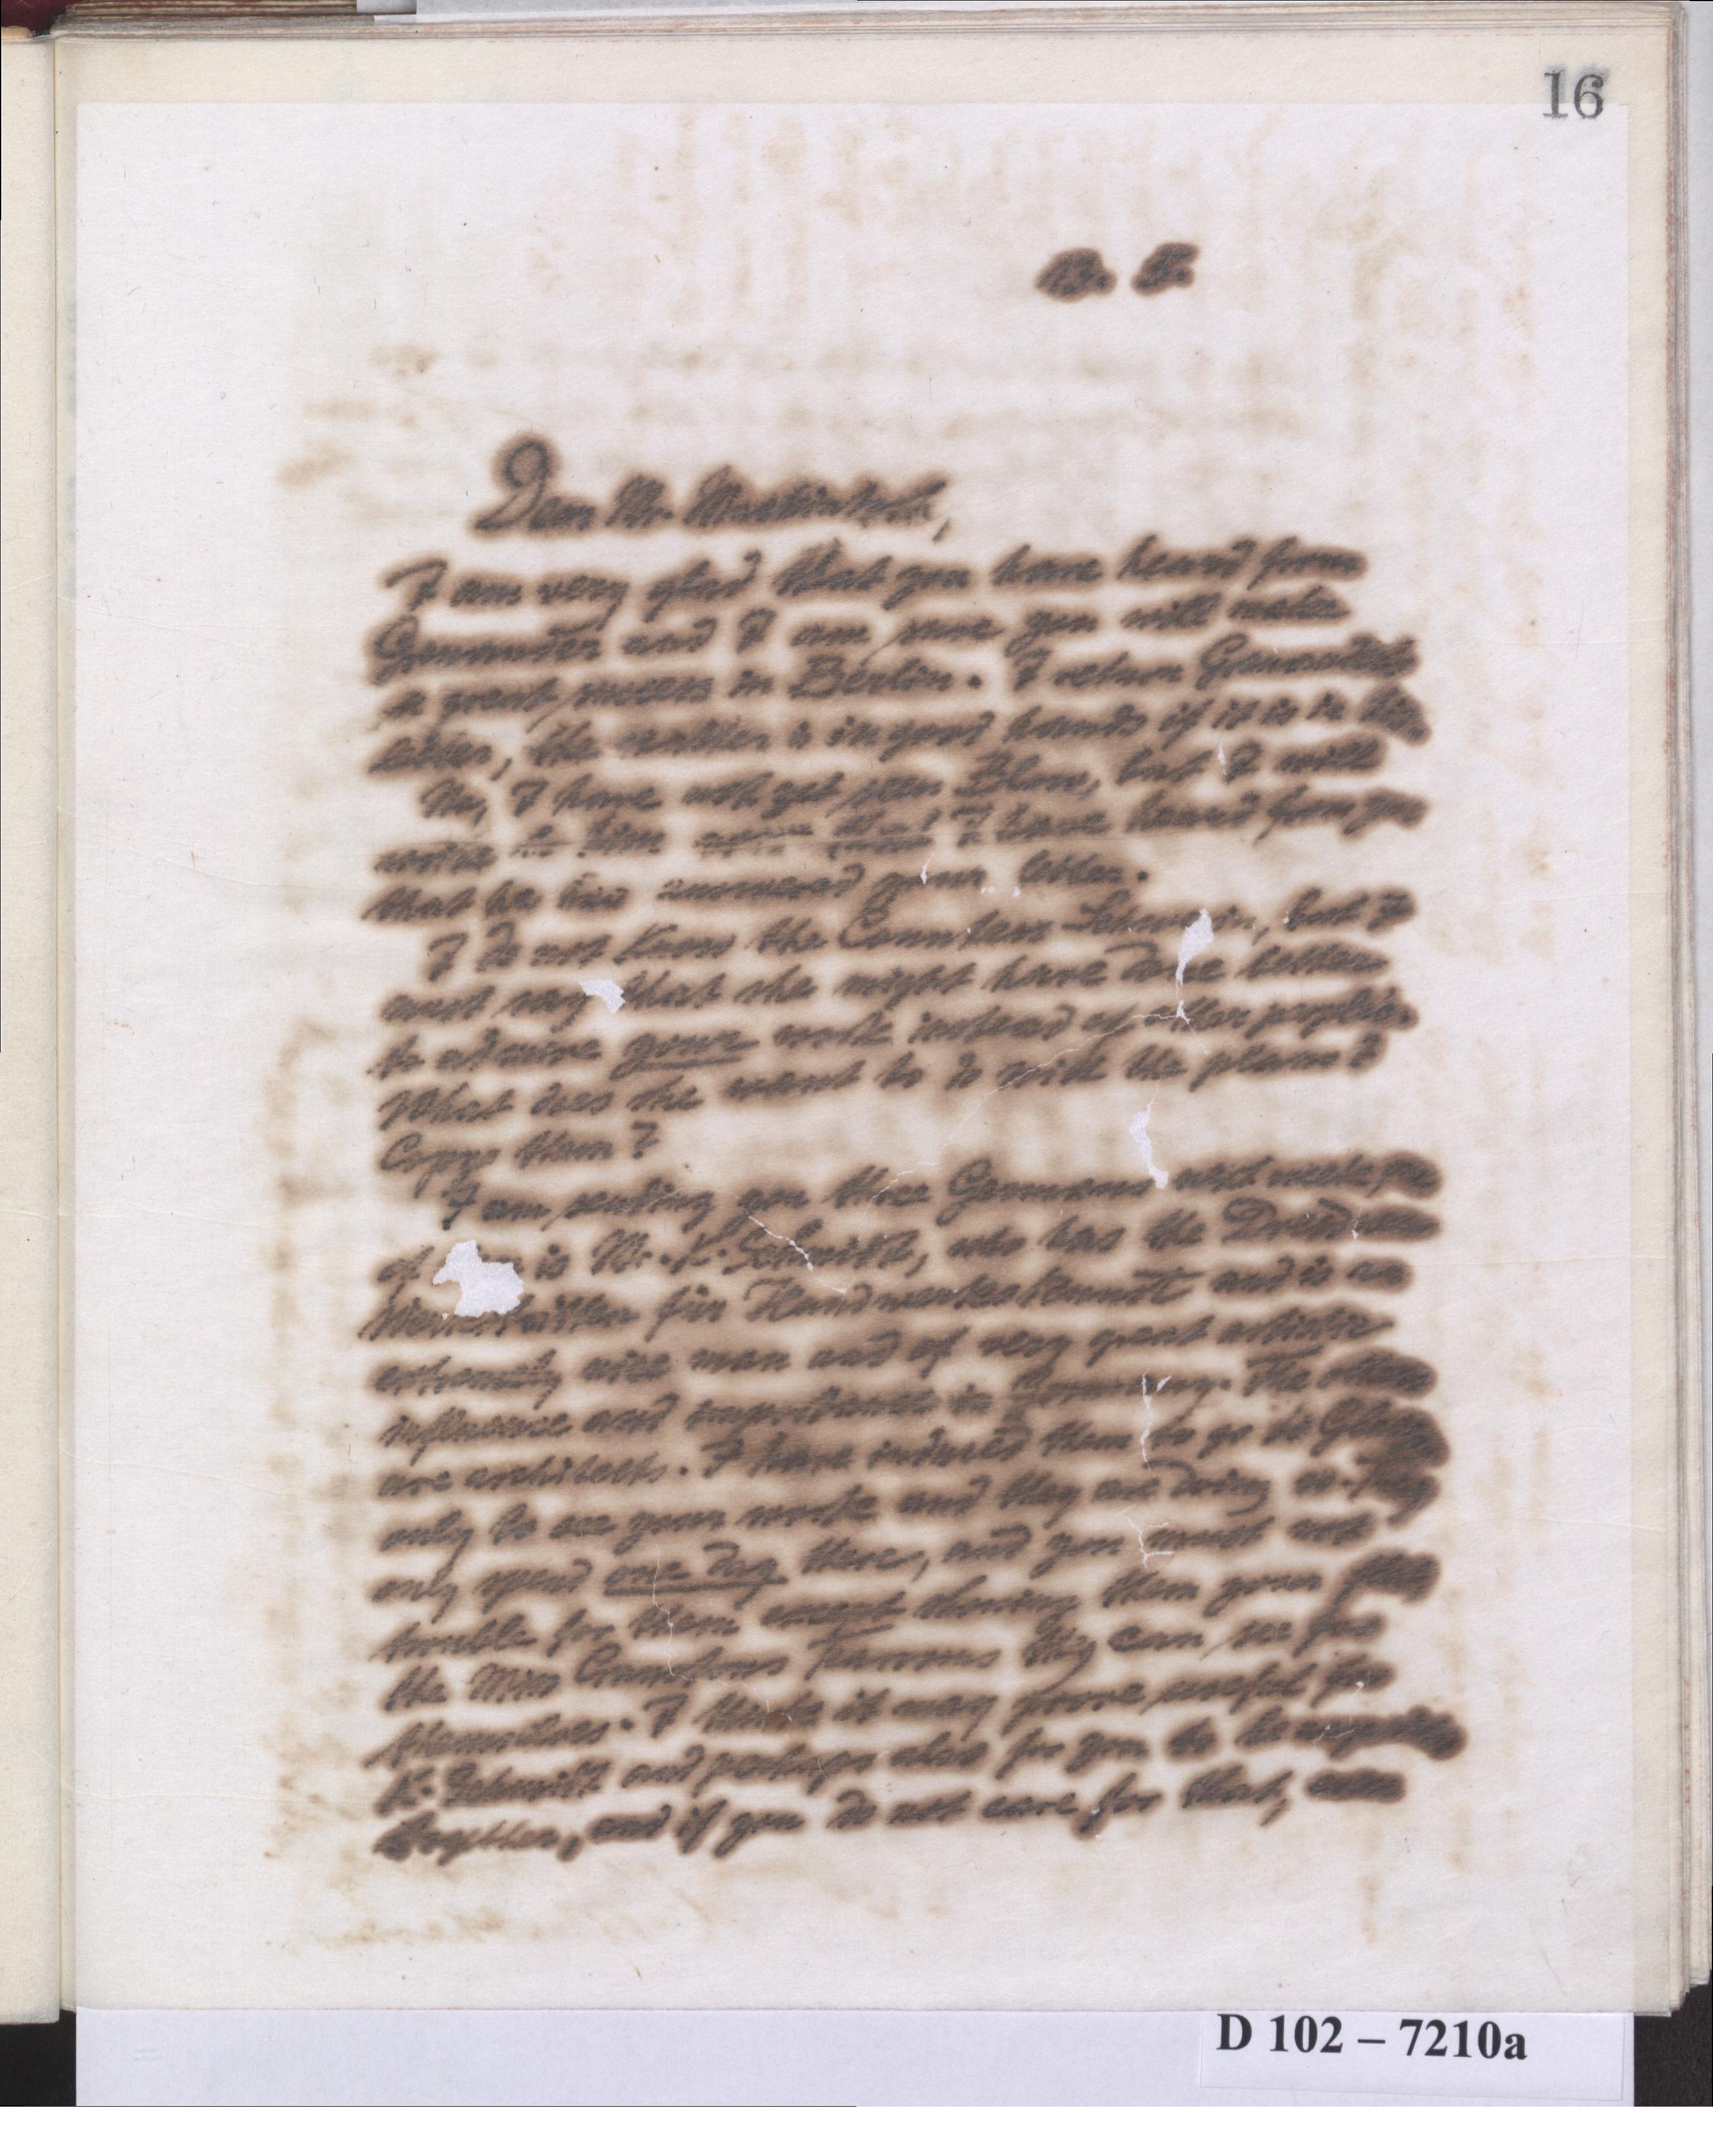 16
Dear Mr. Mackintosh,
I am very glad that you have heard from
and I am sure you will make
a great success in Berlin. I return
letter, the matter is in good hands if it is in his
No, I have not yet seen Blom, but I will
write to him I have heard from you
that he has answered your letter.
I do not know the Countess Schwerin, but I
must say that she might have done better
to admire your work instead of other people's.
What does she want to do with the plans?
Copy them?
I am sending you three Germans next week, one
of is Mr. K. Schmidt, who has the Dresdener
Werkstätten für Handwerkskunst and is an
extremely nice man and of very great artistic
influence and importance in Germany. The other
are architects. I have induced them to go to
only to see your work and they are doing so. They
only spend one day there, and you must not
trouble for them except showing them your
the Miss Cranstons Tearooms they can see for
themselves. I think it may prove useful for
K. Schmidt and perhaps also for you to be
together, and if you do not care for that,
D 102 – 7210a